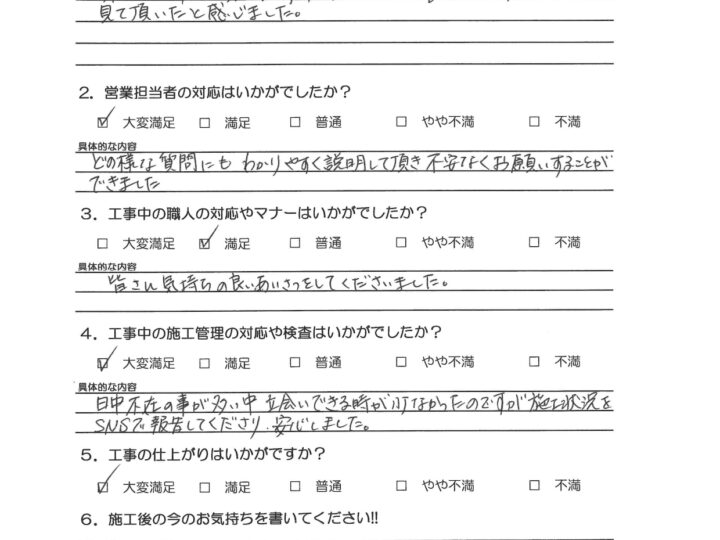 見て頂いたと感じました。
2．営業担当者の対応はいかがでしたか？
☑ 大変満足 □ 満足 □ 普通 □ やや不満 □ 不満
具体的な内容
どの様な質問にも わかりやすく説明して頂き 不安なくお願いすることが
できました
3．工事中の職人の対応やマナーはいかがでしたか？
□ 大変満足 ☑ 満足 □ 普通 □ やや不満 □ 不満
具体的な内容
皆さん気持ちの良いあいさつをしてくださいました。
4．工事中の施工管理の対応や検査はいかがでしたか？
☑ 大変満足 □ 満足 □ 普通 □ やや不満 □ 不満
具体的な内容
日中不在の事が多い中 立会いできる時が少なかったのですが施工状況を
SNSで報告してくださり、安心しました。
5．工事の仕上がりはいかがですか？
☑ 大変満足 □ 満足 □ 普通 □ やや不満 □ 不満
6．施工後の今のお気持ちを書いてください!!